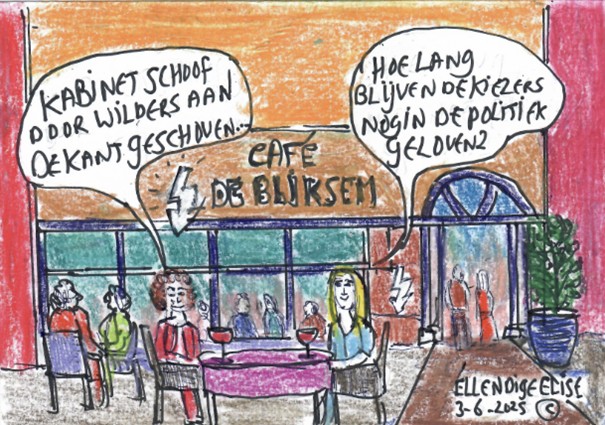 KABINET SCHOOF
DOOR WILDERS AAN
DE KANT GESCHOVEN...
HOE LANG
BLIJVEN DE KIEZERS
NOG IN DE POLITIEK
GELOVEN?
CAFÉ
DE BLIKSEM
ELLENDIGE ELISE
3-6-2025 ©